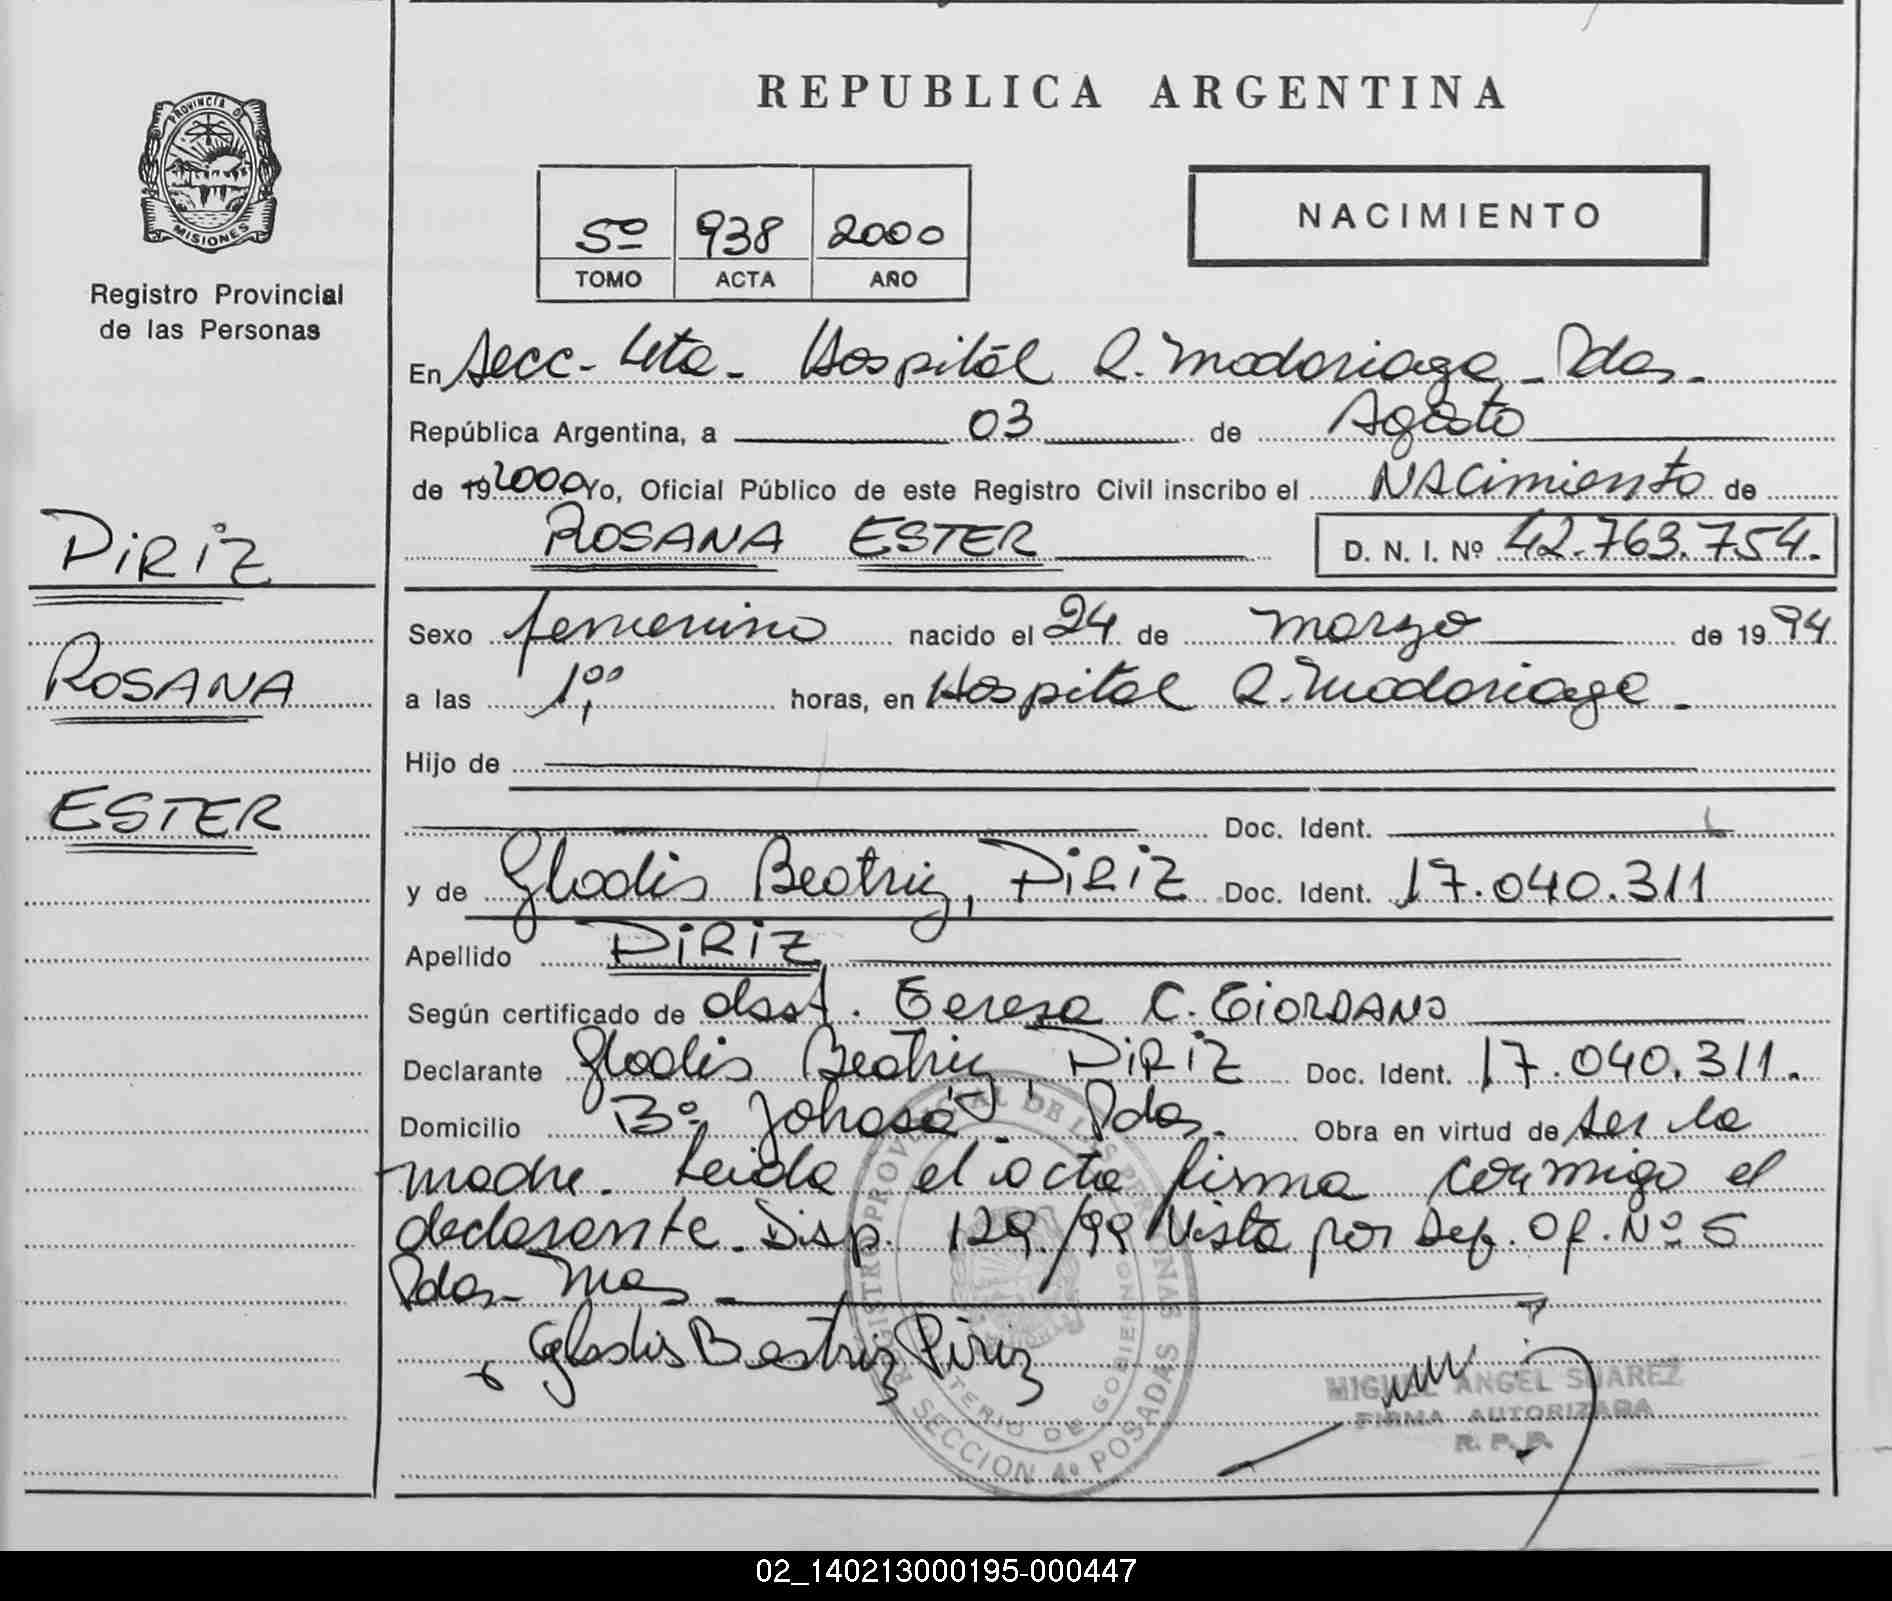 REPUBLICA ARGENTINA
PROVINCIA DE MISIONES
Registro Provincial
de las Personas
5º 938 2000
TOMO ACTA AÑO
NACIMIENTO
En Secc. 4ta - Hospital R. Madariaga - Pdas.
República Argentina, a 03 de Agosto
de 19 2000 Yo, Oficial Público de este Registro Civil inscribo el NACimiento de
ROSANA ESTER D. N. I. Nº 42.763.754.
PIRIZ
ROSANA
ESTER
Sexo femenino nacido el 24 de marzo de 1994
a las 1,00 horas, en Hospital R. Madariaga -
Hijo de
Doc. Ident.
y de Gladis Beatriz, PIRIZ Doc. Ident. 17.040.311
Apellido PIRIZ
Según certificado de obst. Teresa C. GIORDANO
Declarante Gladis Beatriz, PIRIZ Doc. Ident. 17.040.311.
Domicilio Bº Pdas. Obra en virtud de ser la
madre. Leida el acta firma conmigo el
declarante. Disp. 129/99 Vista por Def. Of. Nº 5
Pdas - Mnes
Gladis Beatriz Piriz
REGISTRO PROVINCIAL DE LAS PERSONAS
MINISTERIO DE GOBIERNO
SECCION 4º POSADAS
MIGUEL ANGEL SUAREZ
FIRMA AUTORIZADA
R. P. P.
02_140213000195-000447